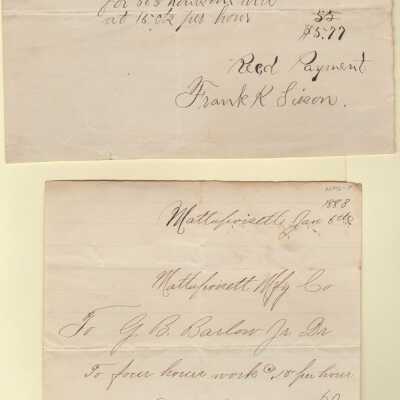 at 16 c per hour
$5.77
Recd Payment
Frank K Sisson.
1888
Mattapoisett Jan 6th
Mattapoisett Mfg Co
To G. B. Barlow Jr. Dr
To four hours work @ 15 per hour
60